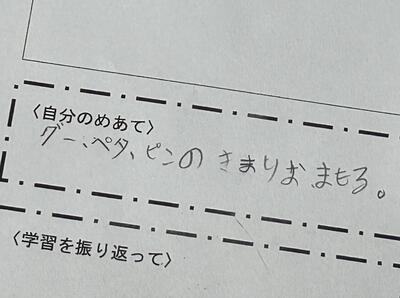 〈自分のめあて〉
グー、ペタ、ピンの きまりお まもろ。
〈学習を振り返って〉